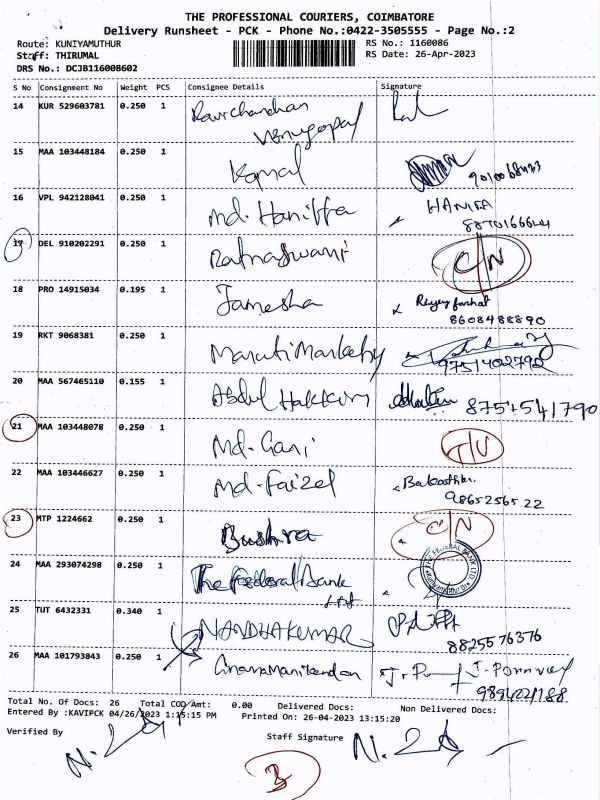 THE PROFESSIONAL COURIERS, COIMBATORE
Delivery Runsheet - PCK - Phone No.:0422-3505555 - Page No.:2
Route: KUNIYAMUTHUR RS No.: 1160086
Staff: THIRUMAL RS Date: 26-Apr-2023
DRS No.: DCJB116008602
S No Consignment No Weight PCS Consignee Details Signature
14 KUR 529603781 0.250 1 Ravichandran
Venugopal
15 MAA 103448184 0.250 1 Komal
16 VPL 942128041 0.250 1 Md. Haniffa HANIFA
17 DEL 910202291 0.250 1 Ratnaswami C/N
18 PRO 14915034 0.195 1 Jamesha
8608488890
19 RKT 9068381 0.250 1 Maruti Marketing
9751402792
20 MAA 567465110 0.155 1 Abdul Hakkim 8757541790
21 MAA 103448078 0.250 1 Md-Gani
22 MAA 103446627 0.250 1 Md-Faizel
9865256522
23 MTP 1224662 0.250 1 Bushra C/N
24 MAA 293074298 0.250 1 The Federal Bank
Ltd
THE FEDERAL BANK LTD
25 TUT 6432331 0.340 1 NANDHAKUMAR
8825576376
26 MAA 101793843 0.250 1 J. Ponnvel
Total No. Of Docs: 26 Total COD Amt: 0.00 Delivered Docs: Non Delivered Docs:
Entered By :KAVIPCK 04/26/2023 1:15:15 PM Printed On: 26-04-2023 13:15:20
Verified By Staff Signature
3